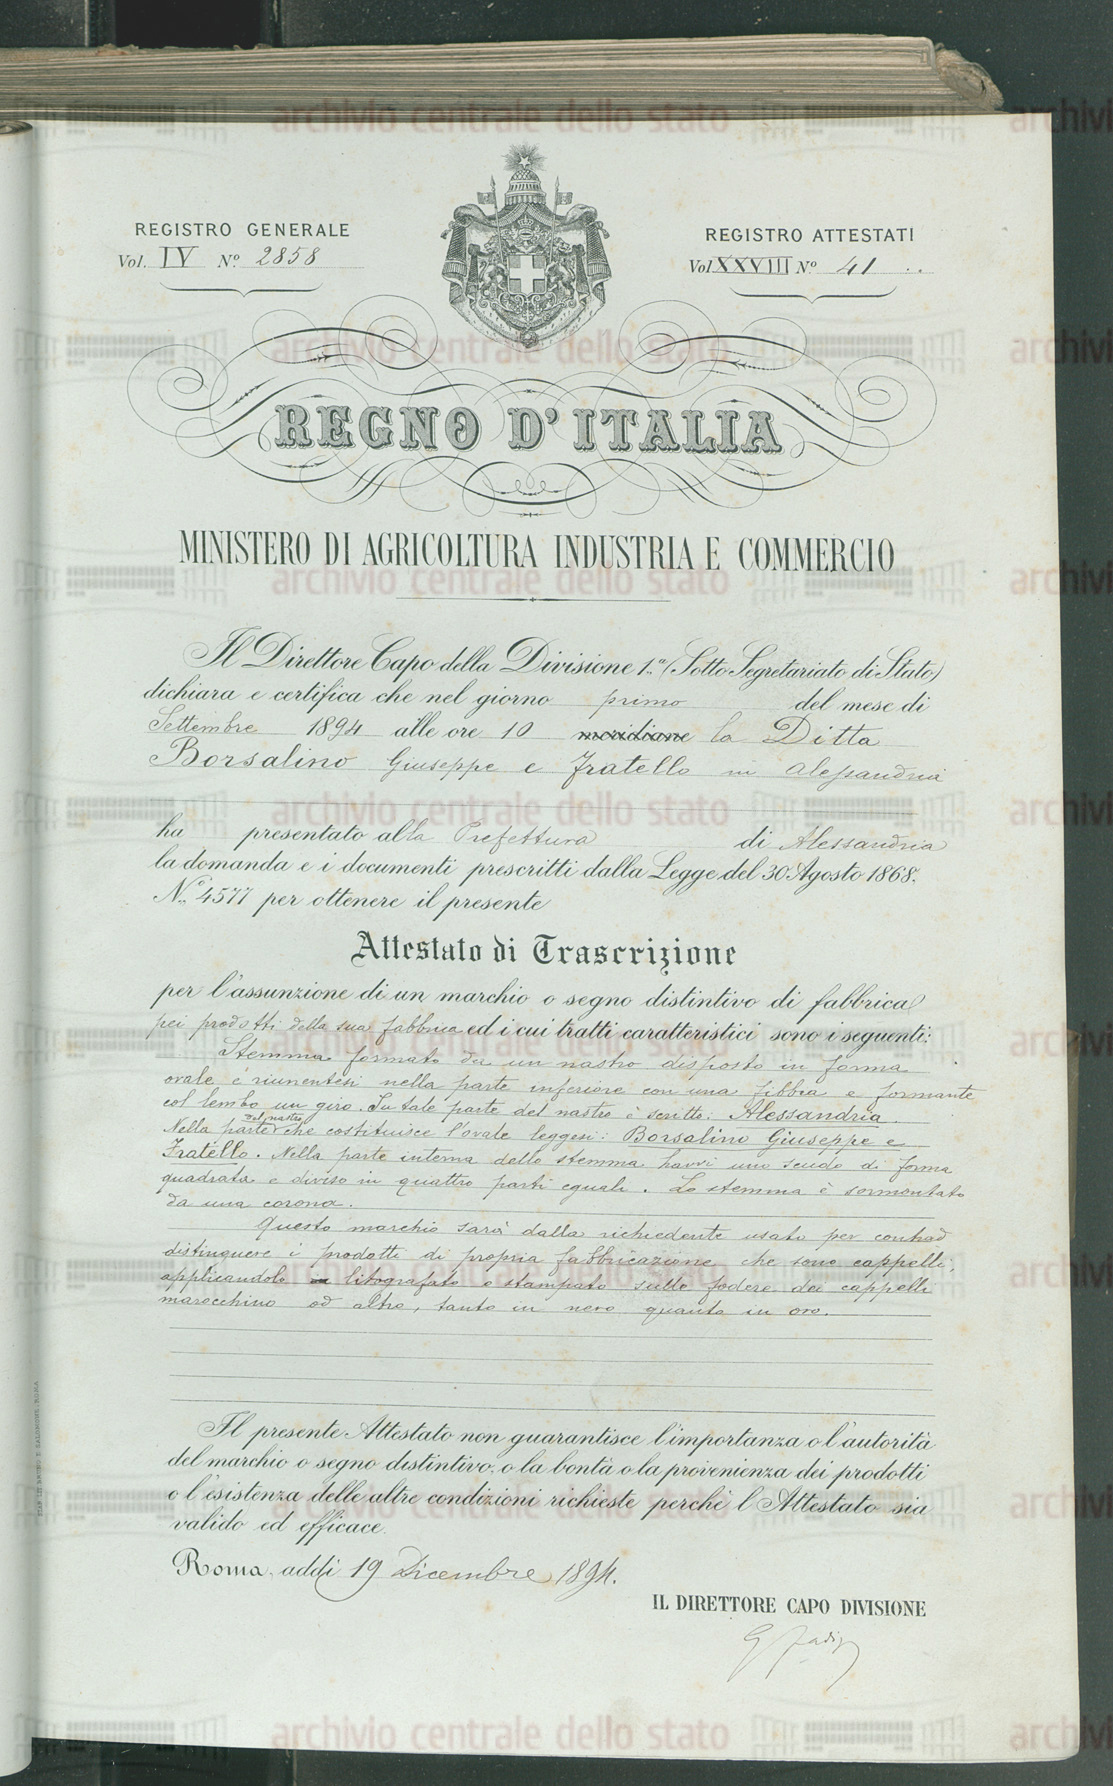 REGISTRO GENERALE
Vol. IV N.º 2858
REGISTRO ATTESTATI
Vol XXVIII N.º 41
REGNO D'ITALIA
MINISTERO DI AGRICOLTURA INDUSTRIA E COMMERCIO
Il Direttore Capo della Divisione 1.ª (Sotto Segretariato di Stato)
dichiara e certifica che nel giorno primo del mese di
Settembre 1894 alle ore 10 meridiane la Ditta
Borsalino Giuseppe e Fratello in Alessandria
ha presentato alla Prefettura di Alessandria
la domanda e i documenti prescritti dalla Legge del 30 Agosto 1868.
N.º 4577 per ottenere il presente
Attestato di Trascrizione
per l'assunzione di un marchio o segno distintivo di fabbrica
pei prodotti della sua fabbrica ed i cui tratti caratteristici sono i seguenti:
Stemma formato da un nastro disposto in forma
ovale e riunentesi nella parte inferiore con una fibbia e formante
col lembo un giro. In tale parte del nastro è scritto: Alessandria.
Nella parte del nastro che costituisce l'ovale leggesi: Borsalino Giuseppe e
Fratello. Nella parte interna dello stemma havvi uno scudo di forma
quadrata e diviso in quattro parti eguali. Lo stemma è sormontato
da una corona.
Questo marchio sarà dalla richiedente usato per contrad
distinguere i prodotti di propria fabbricazione, che sono cappelli,
applicandolo in litografato o stampato sulle fodere dei cappelli
marocchino od altro, tanto in nero quanto in oro.
Il presente Attestato non guarantisce l'importanza o l'autorità
del marchio o segno distintivo, o la bontà o la provenienza dei prodotti
o l'esistenza delle altre condizioni richieste perchè l'Attestato sia
valido ed efficace.
Roma, addì 19 Dicembre 1894.
IL DIRETTORE CAPO DIVISIONE
archivio centrale dello stato